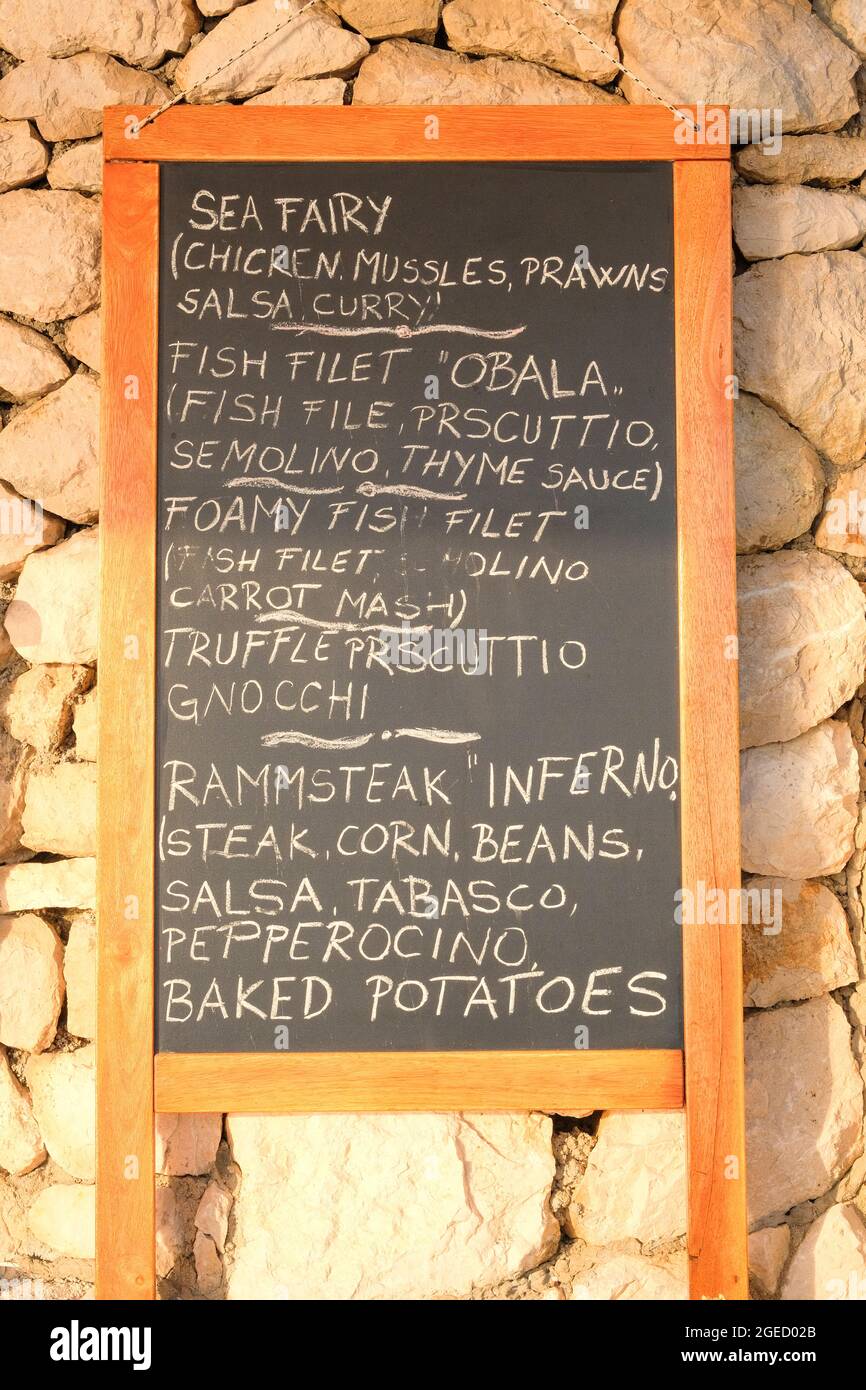 SEA FAIRY
(CHICKEN, MUSSLES, PRAWNS
SALSA, CURRY)
FISH FILET "OBALA„
(FISH FILE, PRSCUTTIO,
SEMOLINO, THYME SAUCE)
FOAMY FISH FILET
(FISH FILET, MOLINO
CARROT MASH)
TRUFFLE PRSCUTTIO
GNOCCHI
RAMMSTEAK "INFERNO"
(STEAK, CORN, BEANS,
SALSA, TABASCO,
PEPPEROCINO,
BAKED POTATOES
alamy
alamy
Image ID: 2GED02B
www.alamy.com